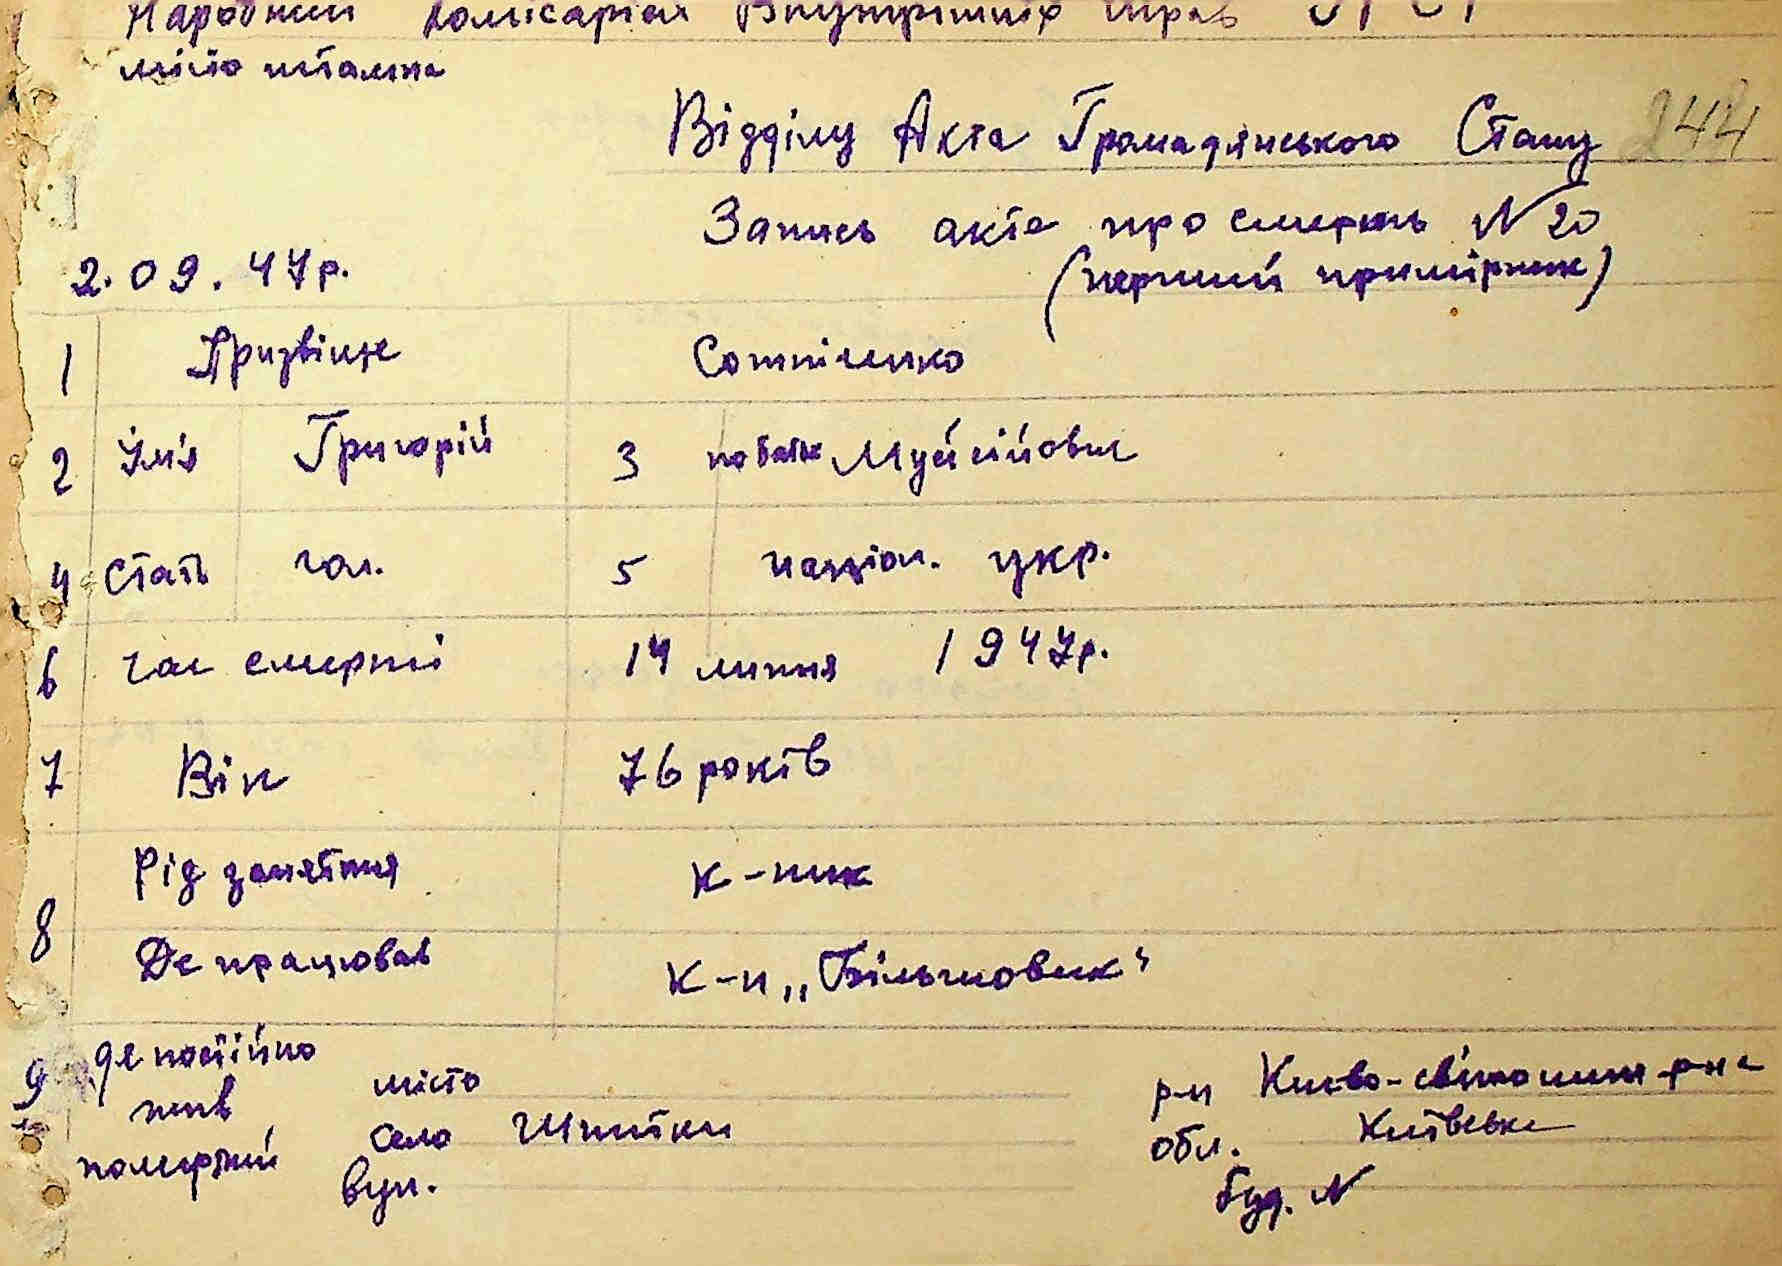 Народний Комісаріат Внутрішніх справ
місто штампа
Відділу Акта Громадянського Стану 244
Запись акта про смерть N 20
(перший примірник)
2.09.47р.
1 Призвіще Сотніченко
2 Ім'я Григорій 3 по бать Мусійович
4 стать чол. 5 націон. укр.
6 час смерті 14 липня 1947р.
7 Вік 76 років
8 Рід заняття к-ник
Де працював К-п „Більшовик"
9 де постійно жив померший
місто р-н Києво-святошин р-на
село Шпитки обл. Київська
вул. буд. N